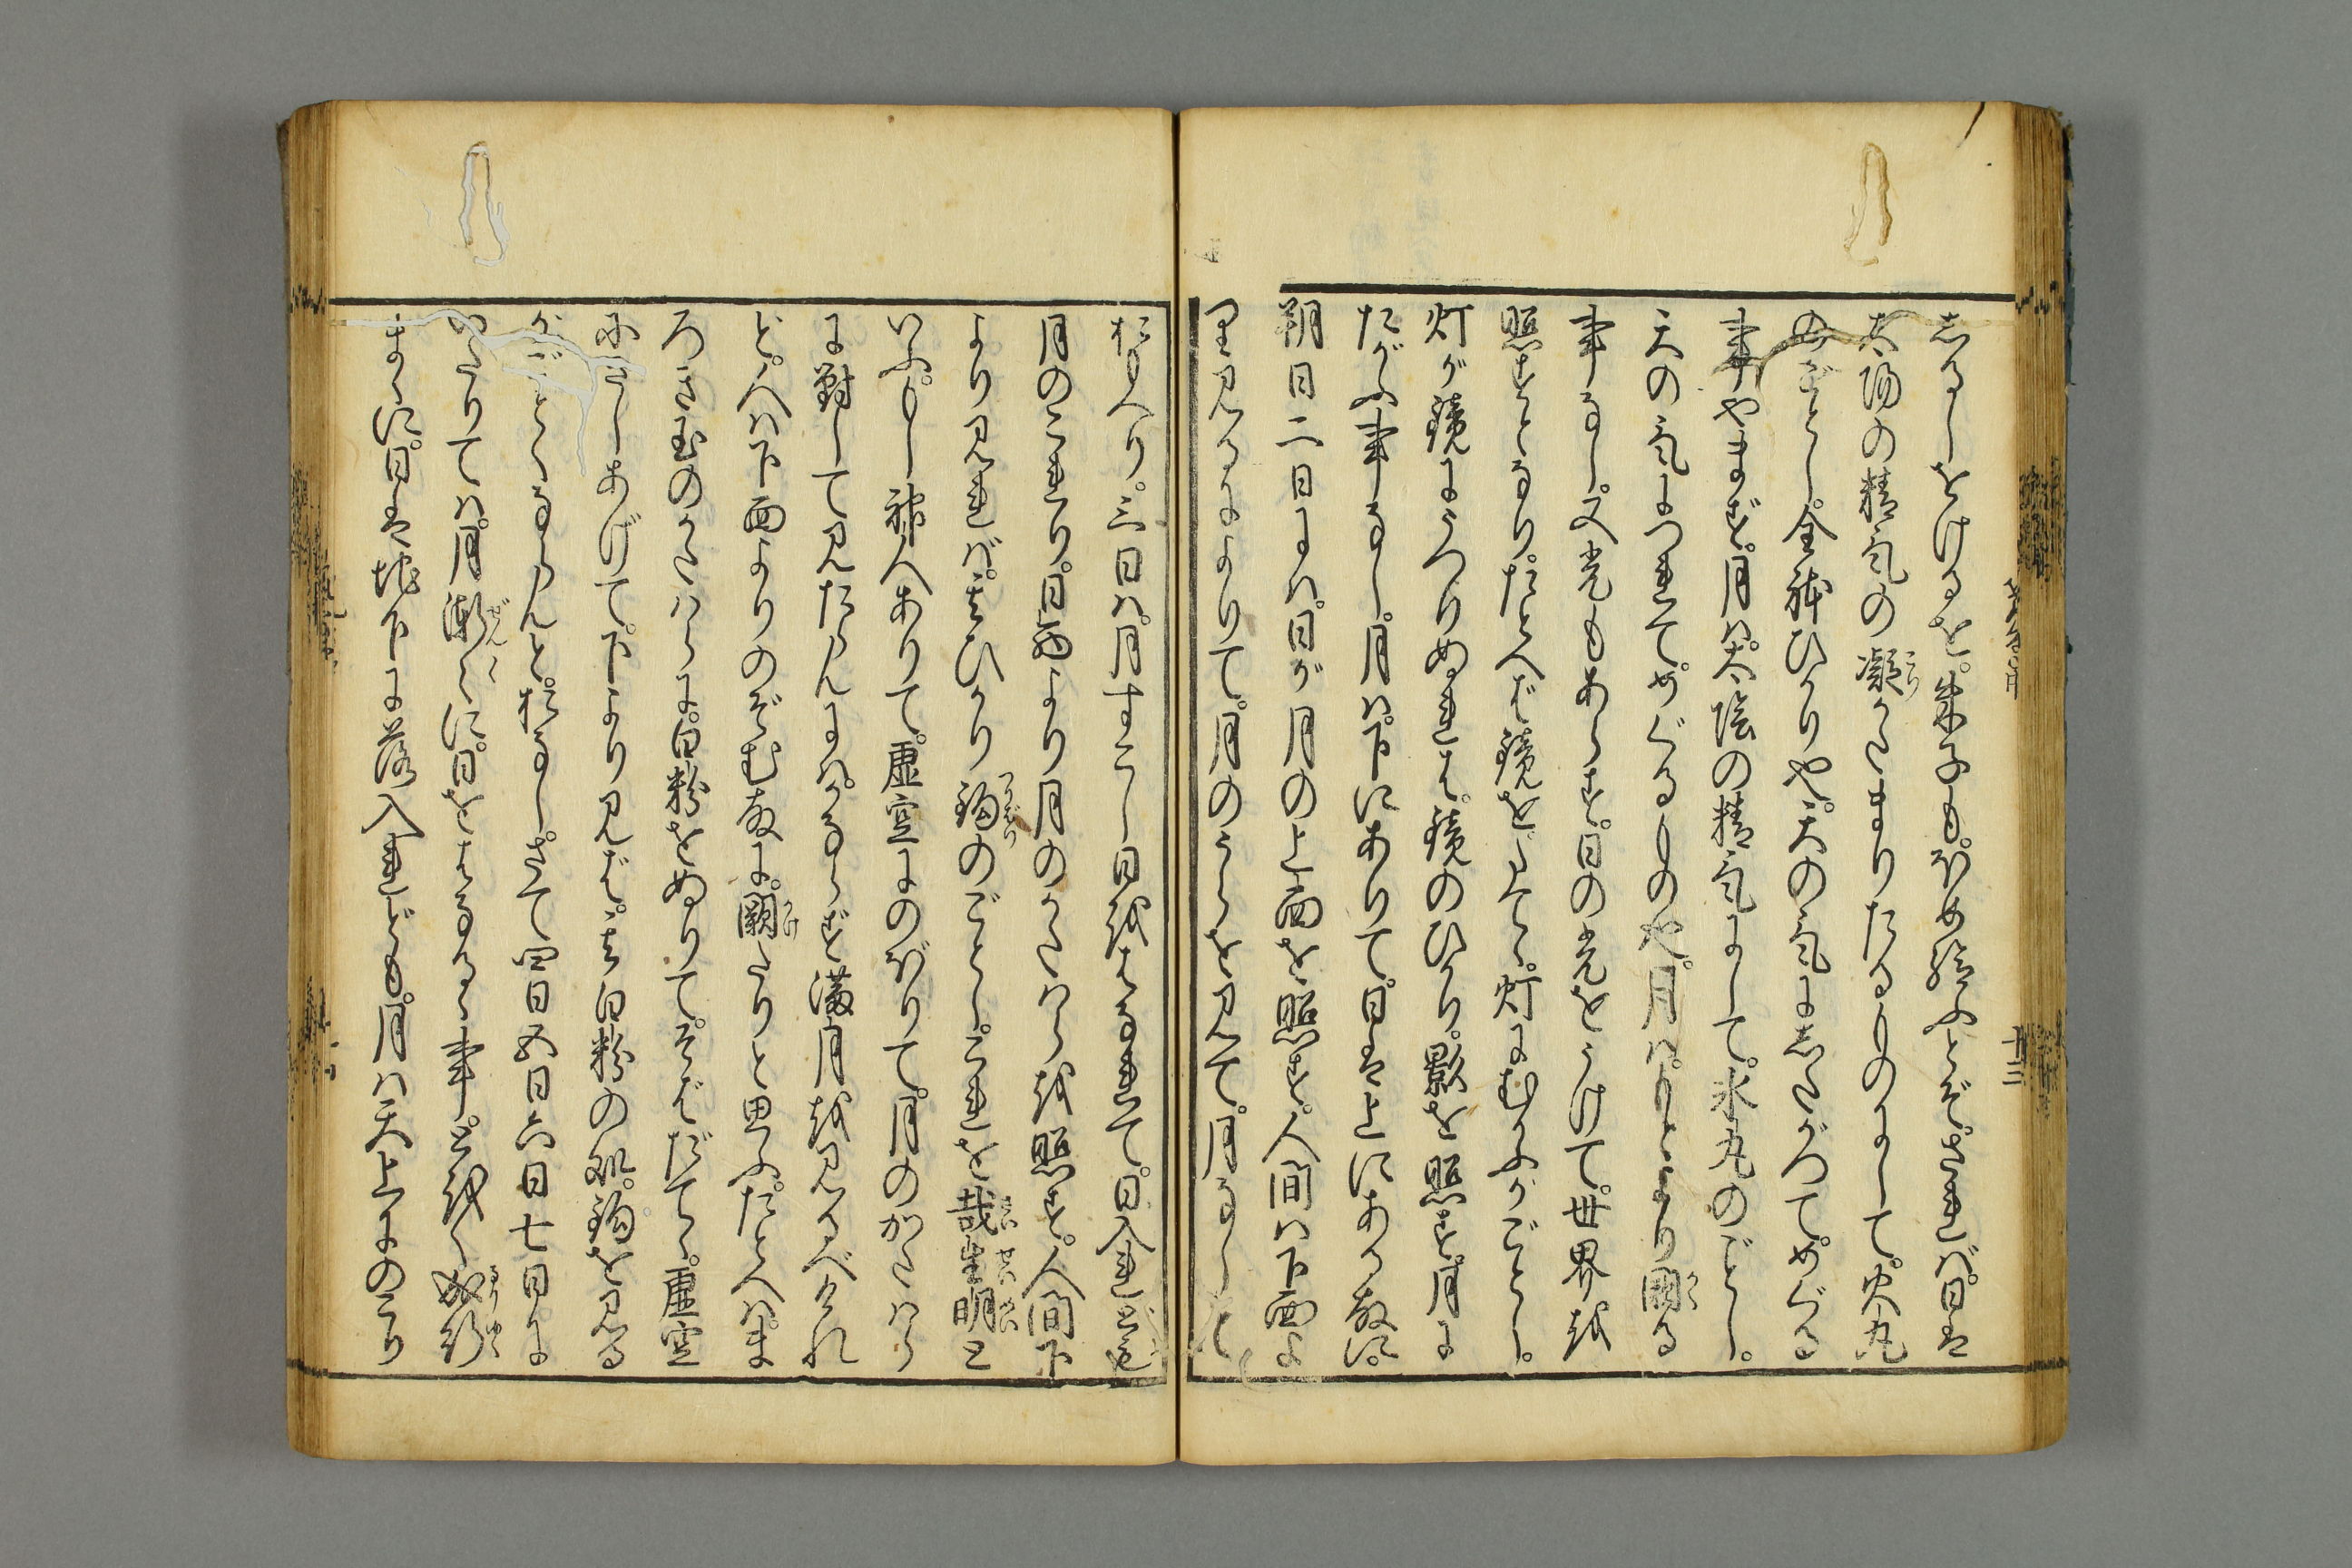 しるしをけるを。朱子も。ほめ給ふとぞ。されば。日は
太陽の精気の凝かたまりたるものにして。火丸
のごとし。全体ひかりや。天の気にしたがつて。めぐる
事やまず。月は。太陰の精気にして。水丸のごとし。
天の気につれて。めぐるものや。月は。もとより圓なる
事なし。又光もあらず。日の光をうけて。世界を
照すとなり。たとへば鏡をたてゝ。灯にむかふがごとし。
灯が鏡にうつりぬれは。鏡のひかり。影を照す。月に
たがふ事なし。月は。下にありて。日は上にある故に。
朔日二日には。日が月の上面を照す。人間は下面よ
り見るによりて。月のうらを見て。月なしと
おもへり。三日は。月すこし日をはなれて。日入れども
月のこれり。日西より月のかたはらを照す。人間下
より見れば。其ひかり鈎のごとし。これを哉生明と
いふ。もし神人ありて。虚空にのぼりて。月のかたはら
に対して見たらんには。かならず満月を見るべけれ
ど。人は下面よりのぞむ故に。闕たりと思ふ。たとへば。ま
ろき玉のかたはらに。白粉をぬりて。そばだてゝ。虚空
にさしあげて。下より見ば。其白粉の処。鈎を見る
がごとくならんと。おなし。さて四日五日六日七日に
いたりては。月漸〻に。日をはなるゝ事。とをく成行
まゝに。日は地下に落入れども。月は天上にのこり
廿三